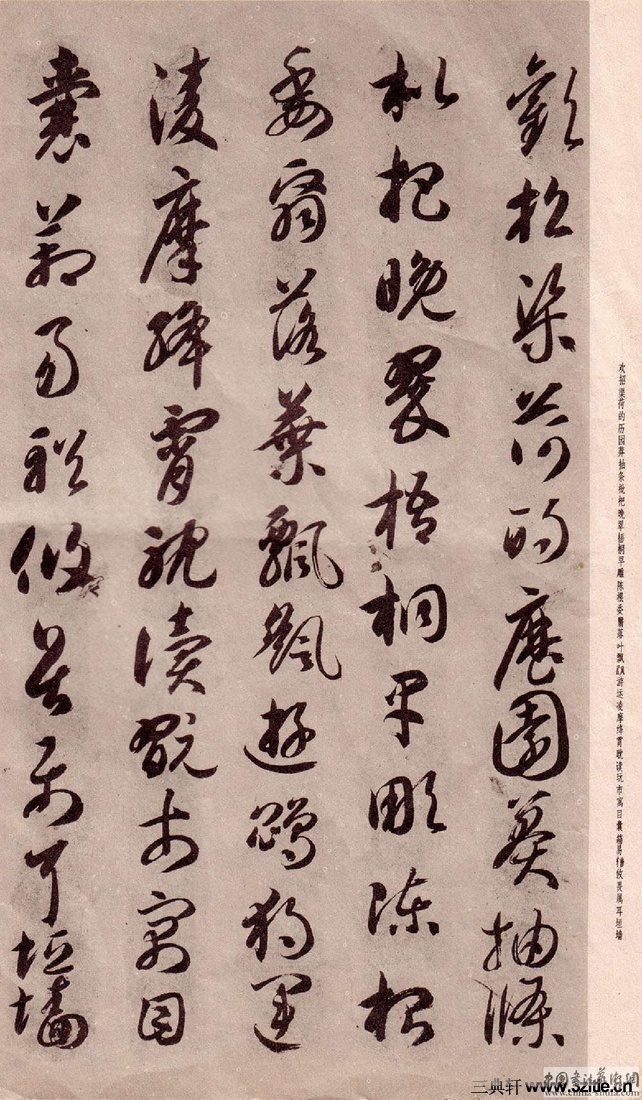 欢招渠荷的历园莽抽条枇杷晚翠梧桐早雕陈根委翳落叶飘飖游运凌摩绛霄耽读玩市寓目囊箱易輶攸畏属耳垣墙
歡招渠荷的歷園莽抽條
枇杷晚翠梧桐早彫陳根
委翳落葉飄颻遊鵾獨運
凌摩絳霄耽讀翫市寓目
囊箱易輶攸畏屬耳垣墻
中国书法艺术网
三典轩 www.3zitie.cn